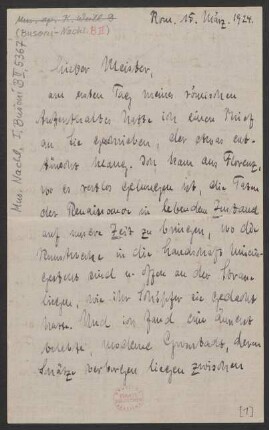 Mus. ep. K. Weill 9
(Busoni-Nachl. B II)
Mus. Nachl. F. Busoni B II, 5367
Rom. 15. März. 1924.
Lieber Meister,
am ersten Tag meines römischen
Aufenthaltes hatte ich einen Brief
an Sie geschrieben, der etwas ent-
täuscht klang. Ich kam aus Florenz,
wo es restlos gelungen ist, die Taten
der Renaissance in lebendem Zustand
auf unsere Zeit zu bringen, wo die
Kunstwerke in die Landschaft hinein-
gebaut sind u. offen an der Sonne
liegen, wie ihr Schöpfer sie gedacht
hatte. Und ich fand eine äusserst
belebte, moderne Grosstadt, deren
Schätze verborgen liegen zwischen
[1]